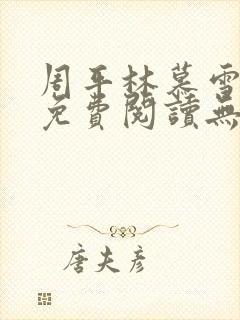 周平林慕雪
免費閱讀無
唐夫彥